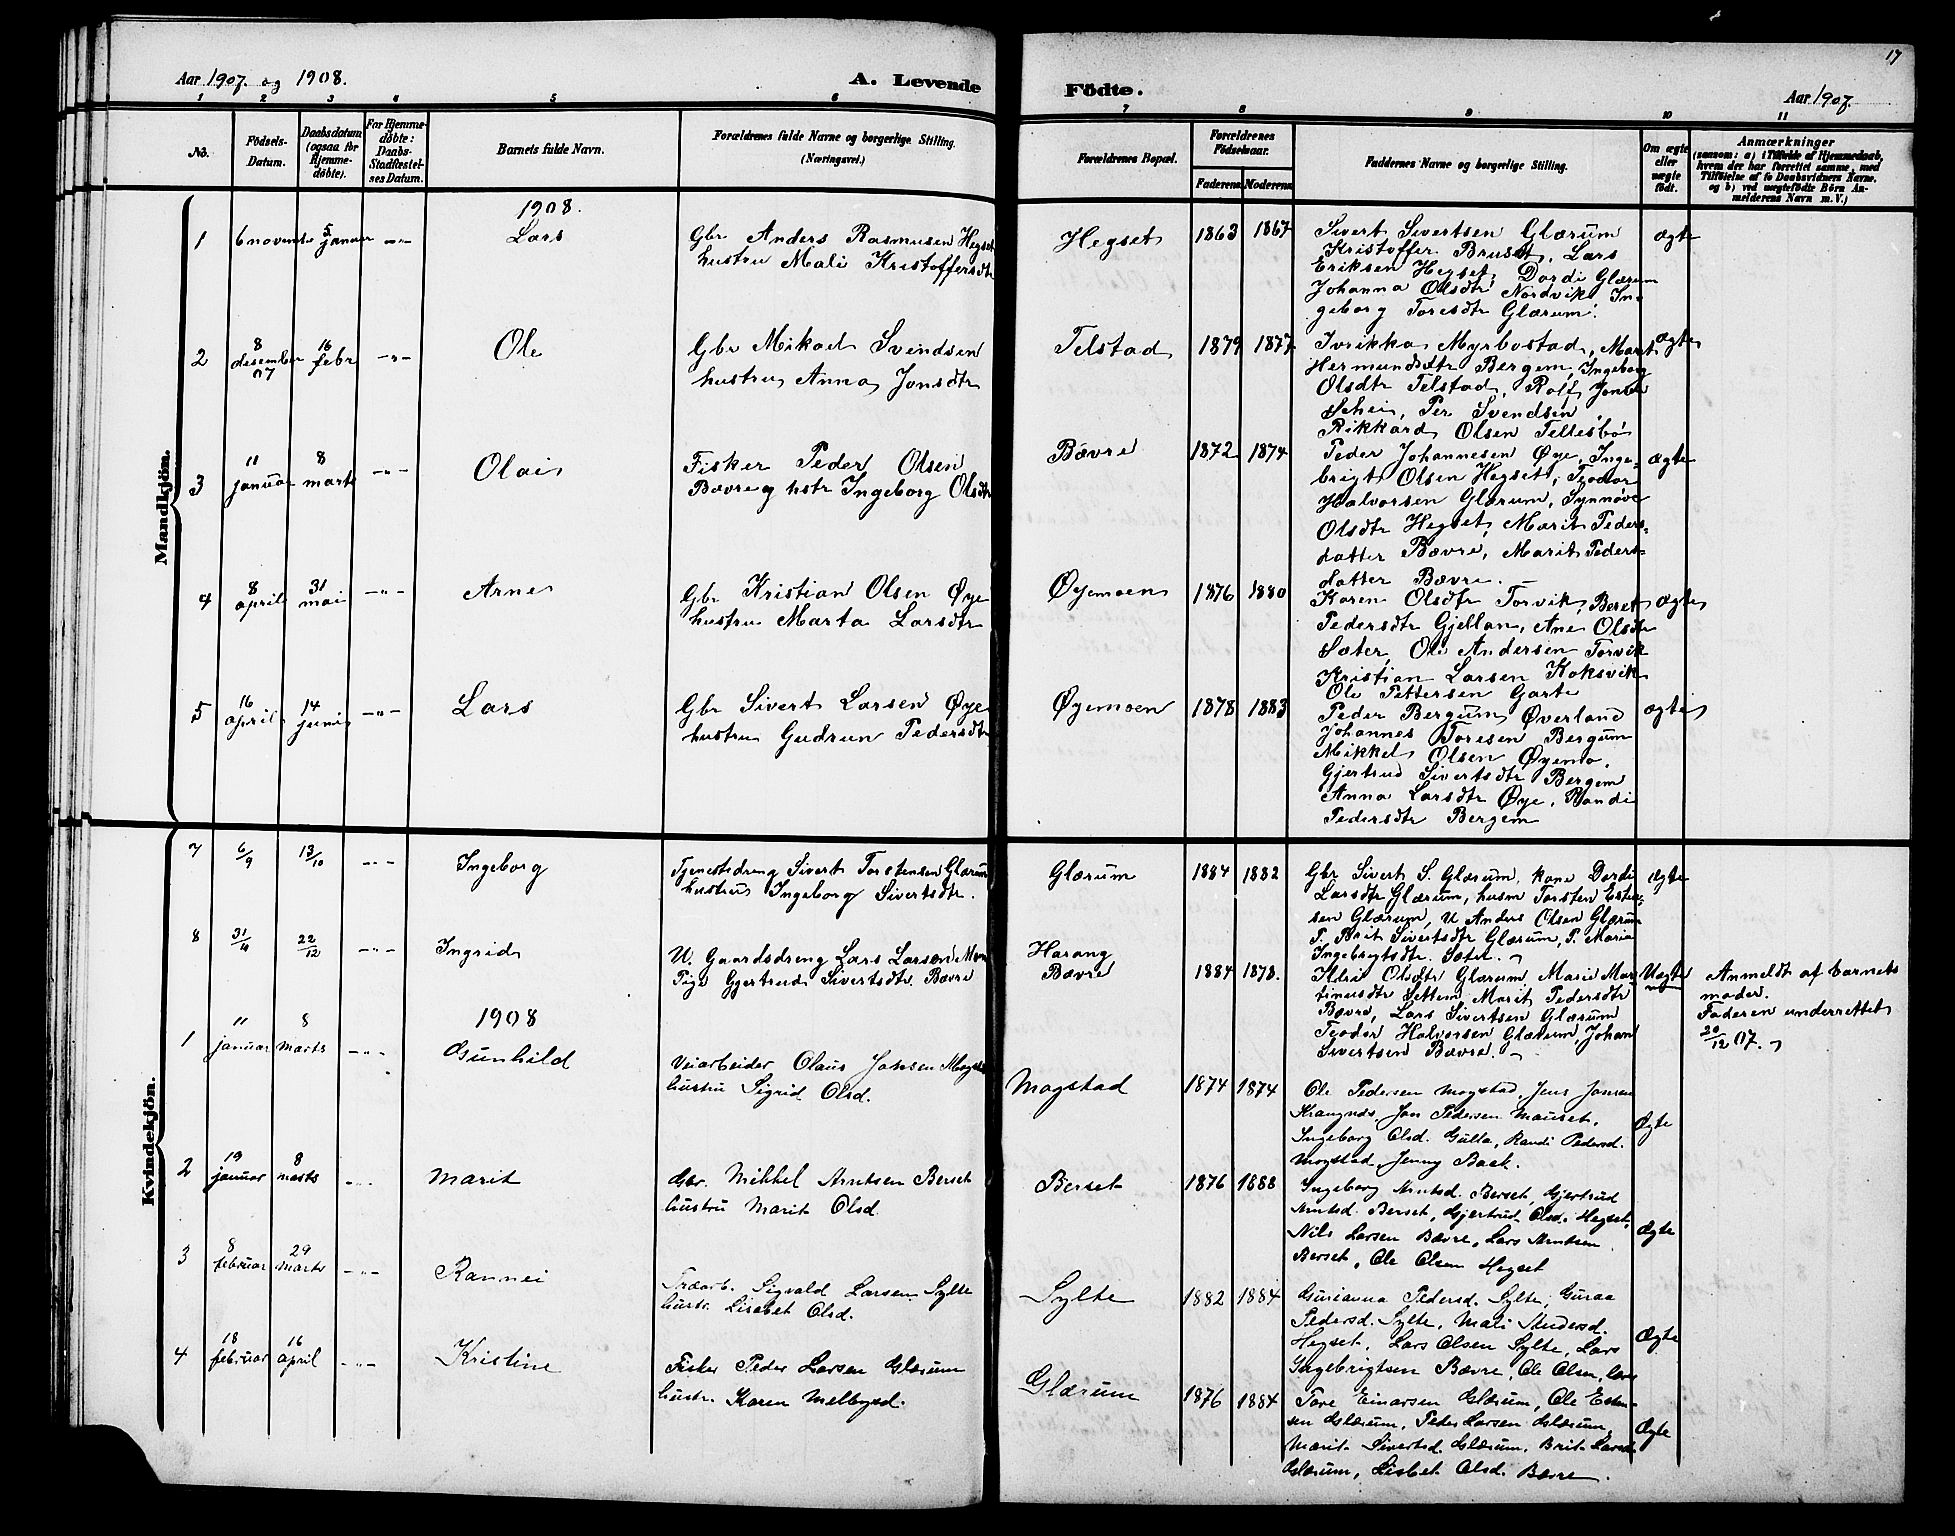 17
Aar 1907. og 1908.
A. Levende
Födte.
Aar 1907.
1 2 3 4 5 6
7 8 9 10 11
No.
Födsels-
Datum.
Daabsdatum
(ogsaa for
Hjemme-
döbte).
For Hjemme-
döbte:
Daabs-
Stadfæstel-
ses Datum.
Barnets fulde Navn.
Forældrenes fulde Navne og borgerlige Stilling.
(Næringsvei.)
Forældrenes Bopæl.
Forældrenes
Födselsaar.
Faderens Moderens
Faddernes Navne og borgerlige Stilling.
Om ægte
eller
uægte
födt.
Anmærkninger
(saasom: a) i Tilfælde af Hjemmedaab,
hvem der har forrettet samme, med
Tilföielse af to Daabsvidners Navne.
og b) ved uægtefödte Börn An-
melderens Navn m. V.)
Mandkjön.
1908.
1
6 november
5 januar
-"-
Lars
Gbr Anders Rasmusen Hegset
hustru Mali Kristoffersdtr
Hegset
1863 1867
Sivert Sivertsen Glærum
Kristoffer Bruset, Lars
Eriksen Hegset, Dordi Glærum
Johanna Olsdtr Nordvik, In-
geborg Toresdtr Glærum.
ægte
2
8
desember
07
16
febr
-"-
Ole
Gbr Mikael Svendsen
hustru Anna Jonsdtr
Telstad
1879 1877
Myrbostad, Marit
Hermundsdtr Bergem, Ingeborg
Olsdtr Telstad, Rolf Jonsen
Schei, Per Svendsen,
Rikkard Olsen Tellesbö
ægte
3
11
januar
8
marts
-"-
Olai
Fisker Peder Olsen
Bævre og hstr Ingeborg Olsdtr
Bævre
1872 1874
Peder Johannesen Øye, Inge-
brigt Olsen Hegset, Teodor
Halvorsen Glærum, Synnöve
Olsdtr Hegset, Marit Peders-
datter Bævre, Marit Peders-
datter Bævre.
ægte
4
8
april
31
mai
-"-
Arne
Gbr Kristian Olsen Øye
hustru Marta Larsdtr
Øyemoen
1876 1880
Karen Olsdtr Torvik, Beret
Pedersdtr Gjellan, Ane Olsdtr
Sæter, Ole Andersen Torvik
Kristian Larsen Koksvik
Ole Pettersen Garte
ægte
5
16
april
14
juni
-"-
Lars
Gbr Sivert Larsen Øye
hustru Gudrun Pedersdtr
Øyemoen
1878 1883
Peder Bergum Øverland
Johannes Toresen Bergum
Mikkel Olsen Øyemo.
Gjertrud Sivertsdtr Bergem
Anna Larsdtr Øye, Randi
Pedersdtr Bergem
ægte
Kvindekjön.
7
6/9
13/10
-"-
Ingeborg
Tjenestedreng Sivert Torstensen Glærum
hustru Ingeborg Sivertsdtr.
Glærum
1884 1882
Gbr Sivert S. Glærum, kone Dordi
Larsdtr Glærum, husm Torsten Esten-
sen Glærum, U Anders Olsen Glærum
P. Brit Sivertsdtr Glærum, P. Maria
Ingebrigtsdtr. Sæter.
ægte
8
22/12
-"-
Ingrid
U. Gaardsdreng Lars Larsen
Pige Gjertrud Sivertsdtr. Bævre
Harang
Bævre
1884 1878.
Olsdtr Glærum, Marie Mar-
tinusdtr Settem, Marit Pedersdtr
Bævre, Lars Sivertsen Glærum
Teodor Halvorsen Glærum, Johan
Sivertsen Bævre.
Uægte
Anmeldt af barnets
moder.
Faderen underrettet
20/12 07.
1908
1
11
januar
8
marts
-"-
Gunhild
Veiarbeider Olaus Jansen
hustru Sigrid Olsd.
Mogstad
1874 1874
Ole Pedersen Mogstad, Jens Jansen
Jon Pedersen Mauset,
Ingeborg Olsd. Gulla, Randi Pedersd.
Mogstad, Jenny Baek.
Ægte
2
19
januar
8
marts
-"-
Marit
Gbr. Mikkel Arntsen Berset
hustru Marit Olsd.
Berset
1876 1888
Ingeborg Arntsd. Berset, Gjertrud
Arntsd. Berset, Gjertrud Olsd. Hegset,
Nils Larsen Bævre, Lars Arntsen
Berset, Ole Olsen Hegset
Ægte
3
8
februar
29
marts
-"-
Rannei
Træarb. Sigvald Larsen Sylte
hustr. Lisabet Olsd.
Sylte
1882 1884
Gurianna Pedersd. Sylte, Guraa
Pedersd. Sylte, Mali Andersd.
Hegset, Lars Olsen Sylte, Lars
Ingebrigtsen Bævre, Ole Olsen,
Ægte
4
18
februar
16
april
-"-
Kristine
Fisker Peder Larsen Glærum
hustr. Karen Melbysd.
Glærum
1876 1884
Tore Einarsen Glærum, Ole Esten-
sen Glærum, Peder Larsen Glærum,
Marit Sivertsd. Glærum, Brit Larsd.
Glærum, Lisbet Olsd. Bævre.
Ægte